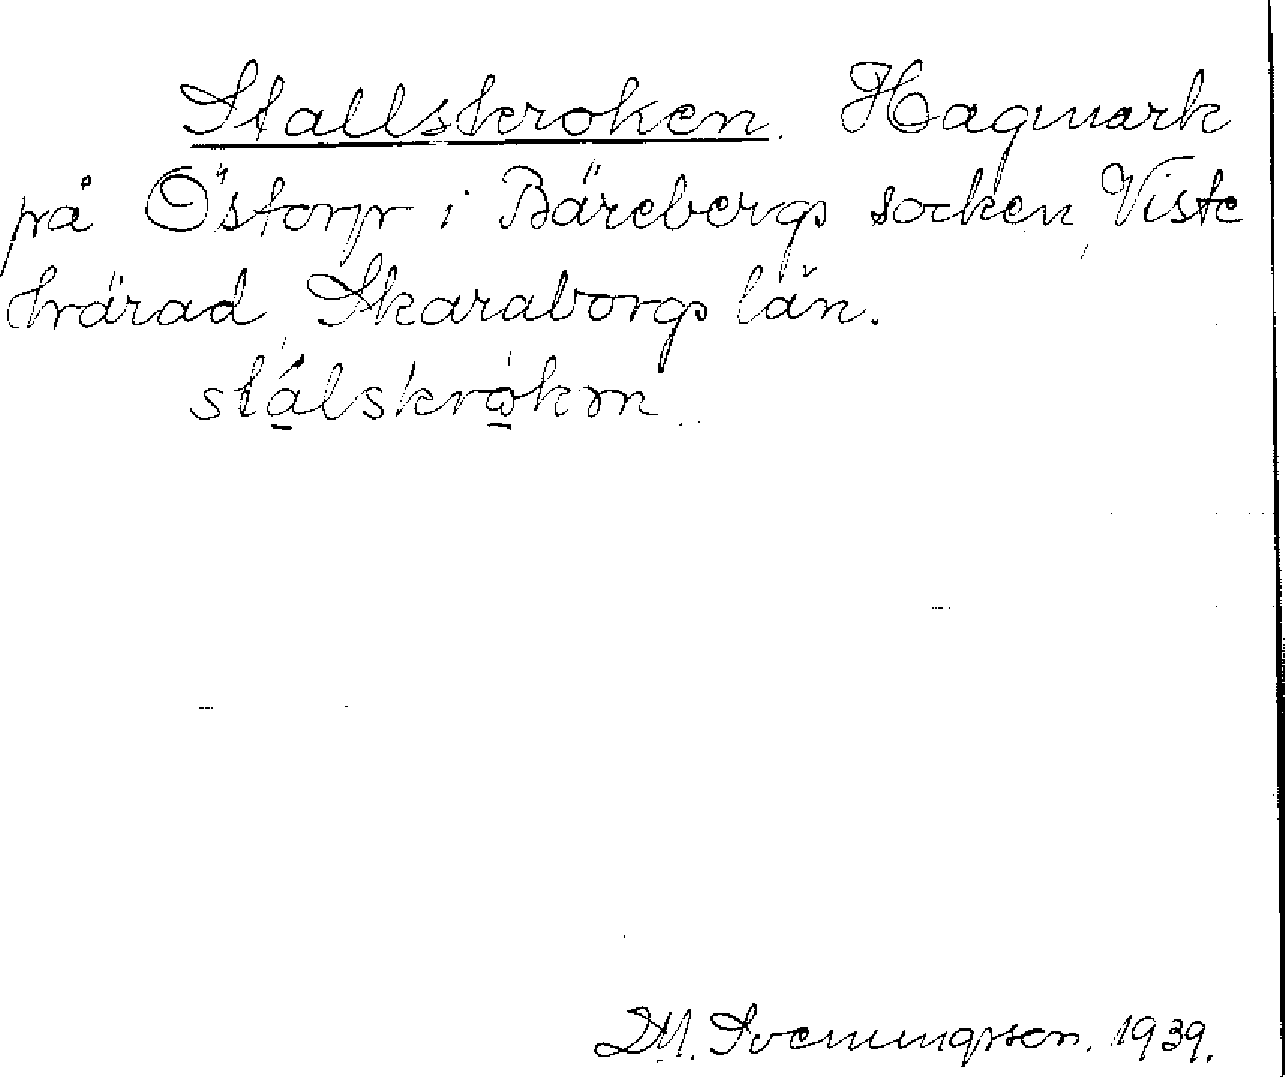 Stallskroken. Hagmark
på Östorp i Bärebergs socken, Viste
härad, Skaraborgs län.
stálskrókɷn.
D.M. Sveningsson. 1939.